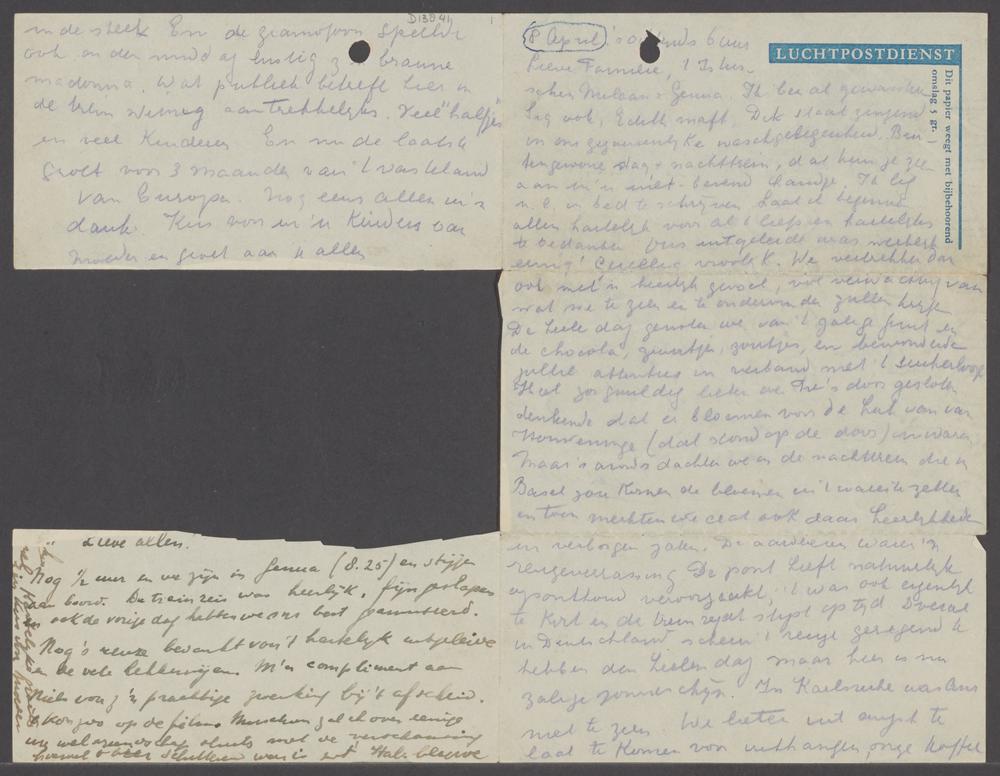 8 April 's avonds 6 uur
LUCHTPOSTDIENST
Dit papier weegt met bijbehoorend
omslag 5 gr.
Lieve Familie, 't Is tus-
schen Milaan & Genua. Ik ben al gewasschen
Sig ook, Edith maft, Dik staat zingend
in ons gezamenlijke waschgelegenheid. Bui-
tengewone dag & nachttrein, dat kun je zien
aan m'n niet-bevend handje. Ik lig
n.l. in bed te schrijven. Laat ik beginnen
allen hartelijk voor al 't liefs en hartelijks
te bedanken. Ons uitgeleide was werkelijk
eenig! Gezellig vroolijk. We vertrokken dan
ook met 'n heerlijk gevoel, vol verwachting van
wat we te zien en te ondervinden zullen krijgen
De heele dag genoten we van 't zalige fruit en
de chocola, zuurtjes, zoutjes, en bewonderden
jullie attenties in verband met 't
Heel zorgvuldig lieten we doos gesloten
denkende dat er bloemen voor de hut van van
(dat stond op de doos) in waren
Maar 's avonds dachten we in de nachttrein die in
Basel zou komen de bloemen in 't water te zetten
en toen merkten we dat ook daar heerlijkheden
in verborgen zaten. De aardbeien waren 'n
reuzeverrassing. De pont heeft natuurlijk
oponthoud veroorzaakt, 't was ook eigenlijk
te kort en de trein reed stipt op tijd. Overal
in Duitschland scheen 't reuze geregend te
hebben den heelen dag maar hier is nu
zalige zonneschijn. In Karlsruhe was Ans
niet te zien. We lieten uit angst te
laat te komen voor onze koffer
in de steek. En de gramofoon speelde
ook in den middag lustig z'n bruine
madonna. Wat publiek betreft hier in
de trein weinig aantrekkelijks. Veel "halfjes"
en veel kinderen. En nu de laatste
groet voor 3 maanden van 't vasteland
van Europa. Nog eens allen m'n
dank. Kus voor m'n kinders van
moeder en groet aan u allen
D13041
Lieve allen.
Nog 1/2 uur en we zijn in Genua (8.25) en stijgen
aan boord. De treinreis was heerlijk, fijn geslapen
en ook de vorige dag hebben we ons best geamuseerd.
Nog 's reuze bedankt voor 't hartelijk uitgeleide
en de vele lekkernijen. M'n compliment aan
Niels voor z'n prachtige zwenking bij 't afscheid.
op de films. Misschien zal ik over eenige